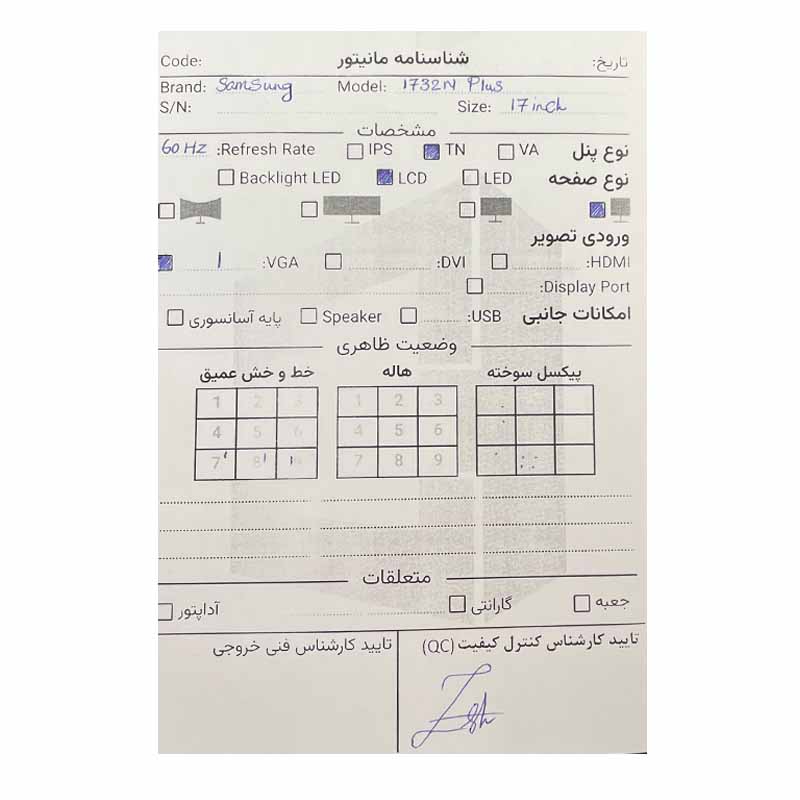 Code: شناسنامه مانیتور تاریخ:
Brand: SamSung Model: 1732N Plus
S/N: Size: 17 inch
مشخصات
نوع پنل VA TN IPS Refresh Rate: 60 Hz
نوع صفحه LED LCD Backlight LED
ورودی تصویر
HDMI: DVI: VGA: 1
Display Port:
امکانات جانبی USB: Speaker پایه آسانسوری
وضعیت ظاهری
پیکسل سوخته هاله خط و خش عمیق
1 2 3 1 2 3
4 5 6 4 5 6
7 8 9 7 8 9
متعلقات
جعبه گارانتی آداپتور
تایید کارشناس کنترل کیفیت (QC) تایید کارشناس فنی خروجی